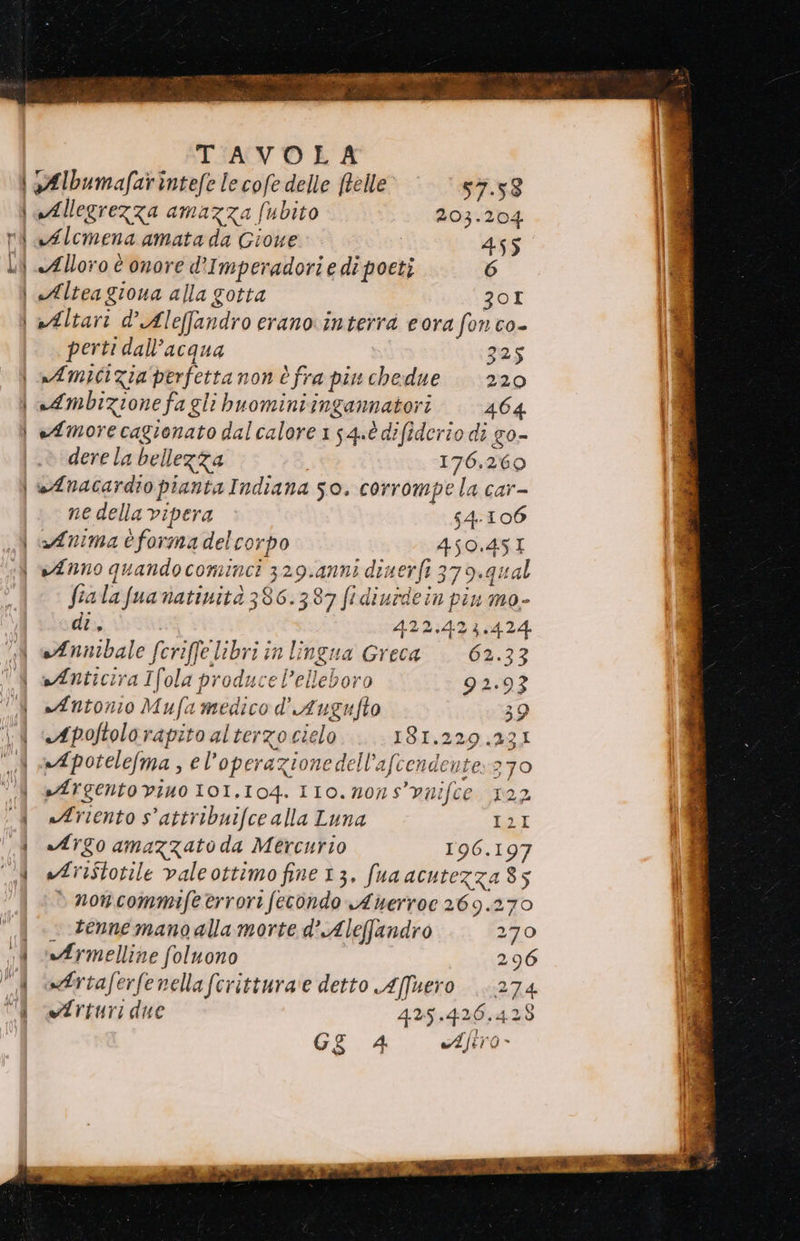 TAVOLA
Albumaſar inteſe le coſe delle ſtelle 57.58
Allegrezza amazza ſubito 203.204
Alcmena amata da Gioue 455
Alloro è onore d'Imperadori e di poeti 6
Altea gioua alla gotta 301
Altari d'Aleſſandro erano in terra e ora ſon co-
perti dall'acqua 325
Amicizia perfetta non è fra piu che due 220
Ambizione fa gli huomini ingannatori 464
Amore cagionato dal calore 154. è diſiderio di go-
dere la bellezza 176.260
Anacardio pianta Indiana 50. corrompe la car-
ne della vipera 54.106
Anima è forma del corpo 450.451
Anno quando cominci 329. anni diuerſi 379. qual
ſia la ſua natiuità 386.387 ſi diuide in piu mo-
di. 422.423.424
Annibale ſcriſſe libri in lingua Greca 62.33
Anticira Iſola produce l'elleboro 92.93
Antonio Muſa medico d'Auguſto 39
Apoſtolo rapito al terzo cielo 181.229.231
Apoteleſma, e l'operazione dell'aſcendente 270
Argento viuo 101.104. 110. non s'vniſce 122
Ariento s'attribuiſce alla Luna 121
Argo amazzato da Mercurio 196.197
Ariſtotile vale ottimo fine 13. ſua acutezza 85
non commiſe errori ſecondo Auerroe 269.270
tenne mano alla morte d'Aleſſandro 270
Armelline ſoluono 296
Artaſerſe nella ſcrittura e detto Aſſuero 274
Arturi due 425.426.428
Gg 4 Aſtro-